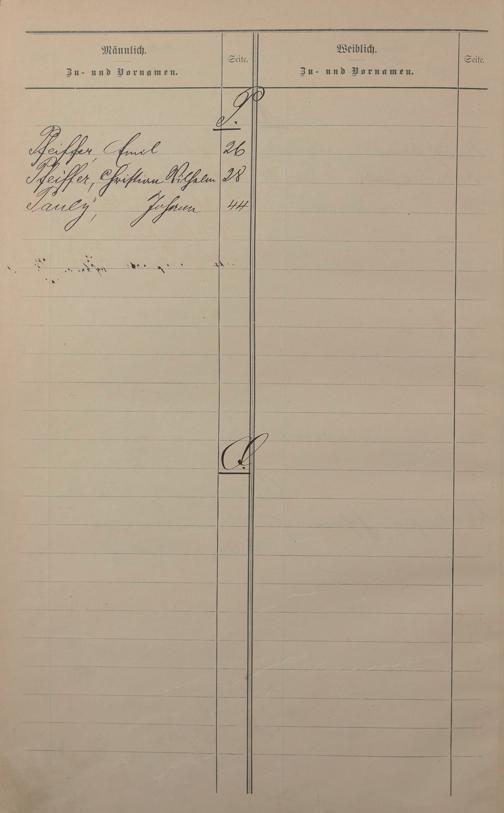 Männlich.
Zu- und Vornamen.
Seite.
Weiblich.
Zu- und Vornamen.
Seite.
P.
Pfeiffer, Emil 26
Pfeiffer, Christian Wilhelm 28
Pauly, Johann 44
Q.